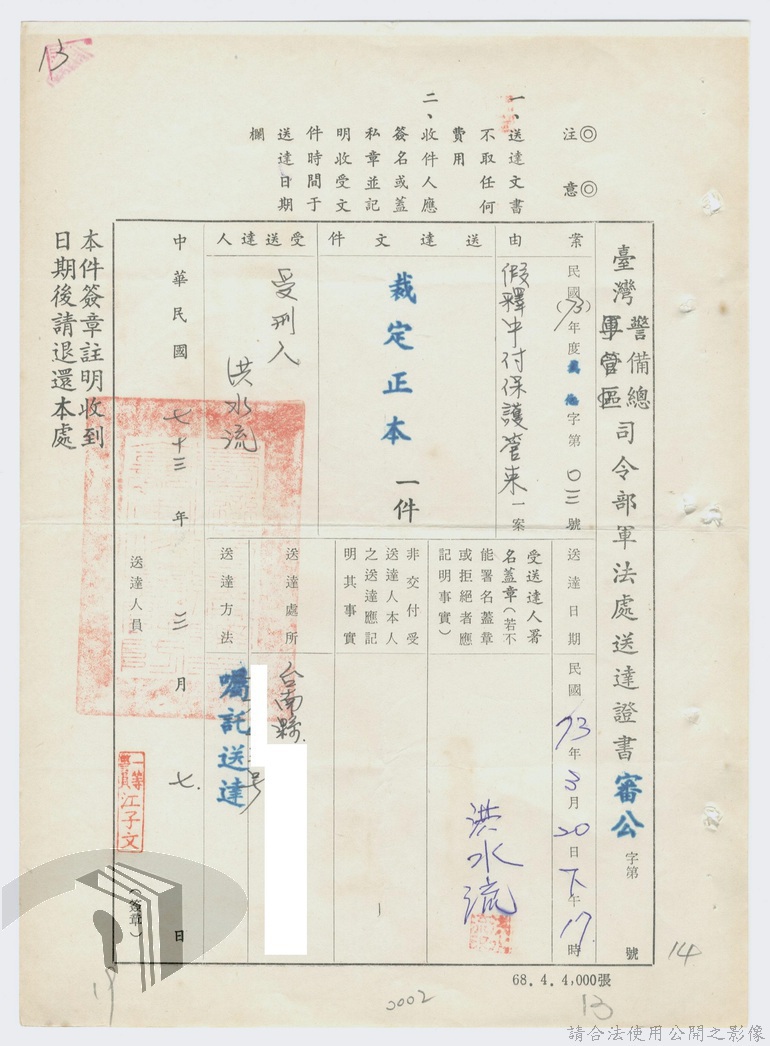 13
◎注意◎
一、送達文書
不取任何
費用
二、收件人應
簽名或蓋
私章並記
明收受文
件時間于
送達日期
欄
臺灣警備總軍管區司令部軍法處送達證書審公字第 號
案由
民國(73)年度 字第〇三號
假釋中付保護管束一案
送達文件
裁定正本一件
受送達人
受刑人
洪水流
送達日期
民國73年3月20日下午17時
受送達人署
名蓋章(若不
能署名蓋章
或拒絕者應
記明事實)
洪水流
非交付受
送達人本人
之送達應記
明其事實
送達處所
台南縣
号
送達方法
囑託送達
中華民國七十三年三月七日
送達人員
一等書員江子文
(簽章)
本件簽章註明收到
日期後請退還本處
68.4.4,000張
14
0002
13
請合法使用公開之影像